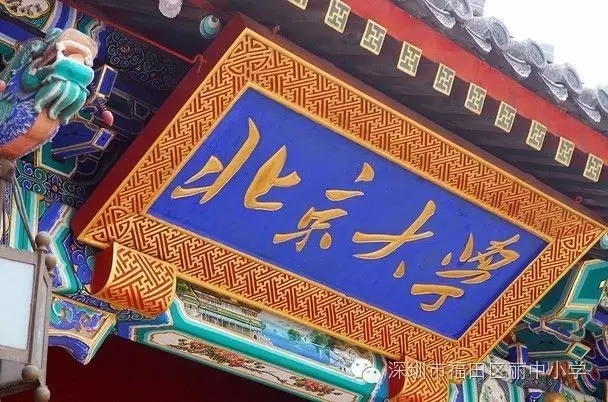 北京大学
深圳市福田区丽中小学